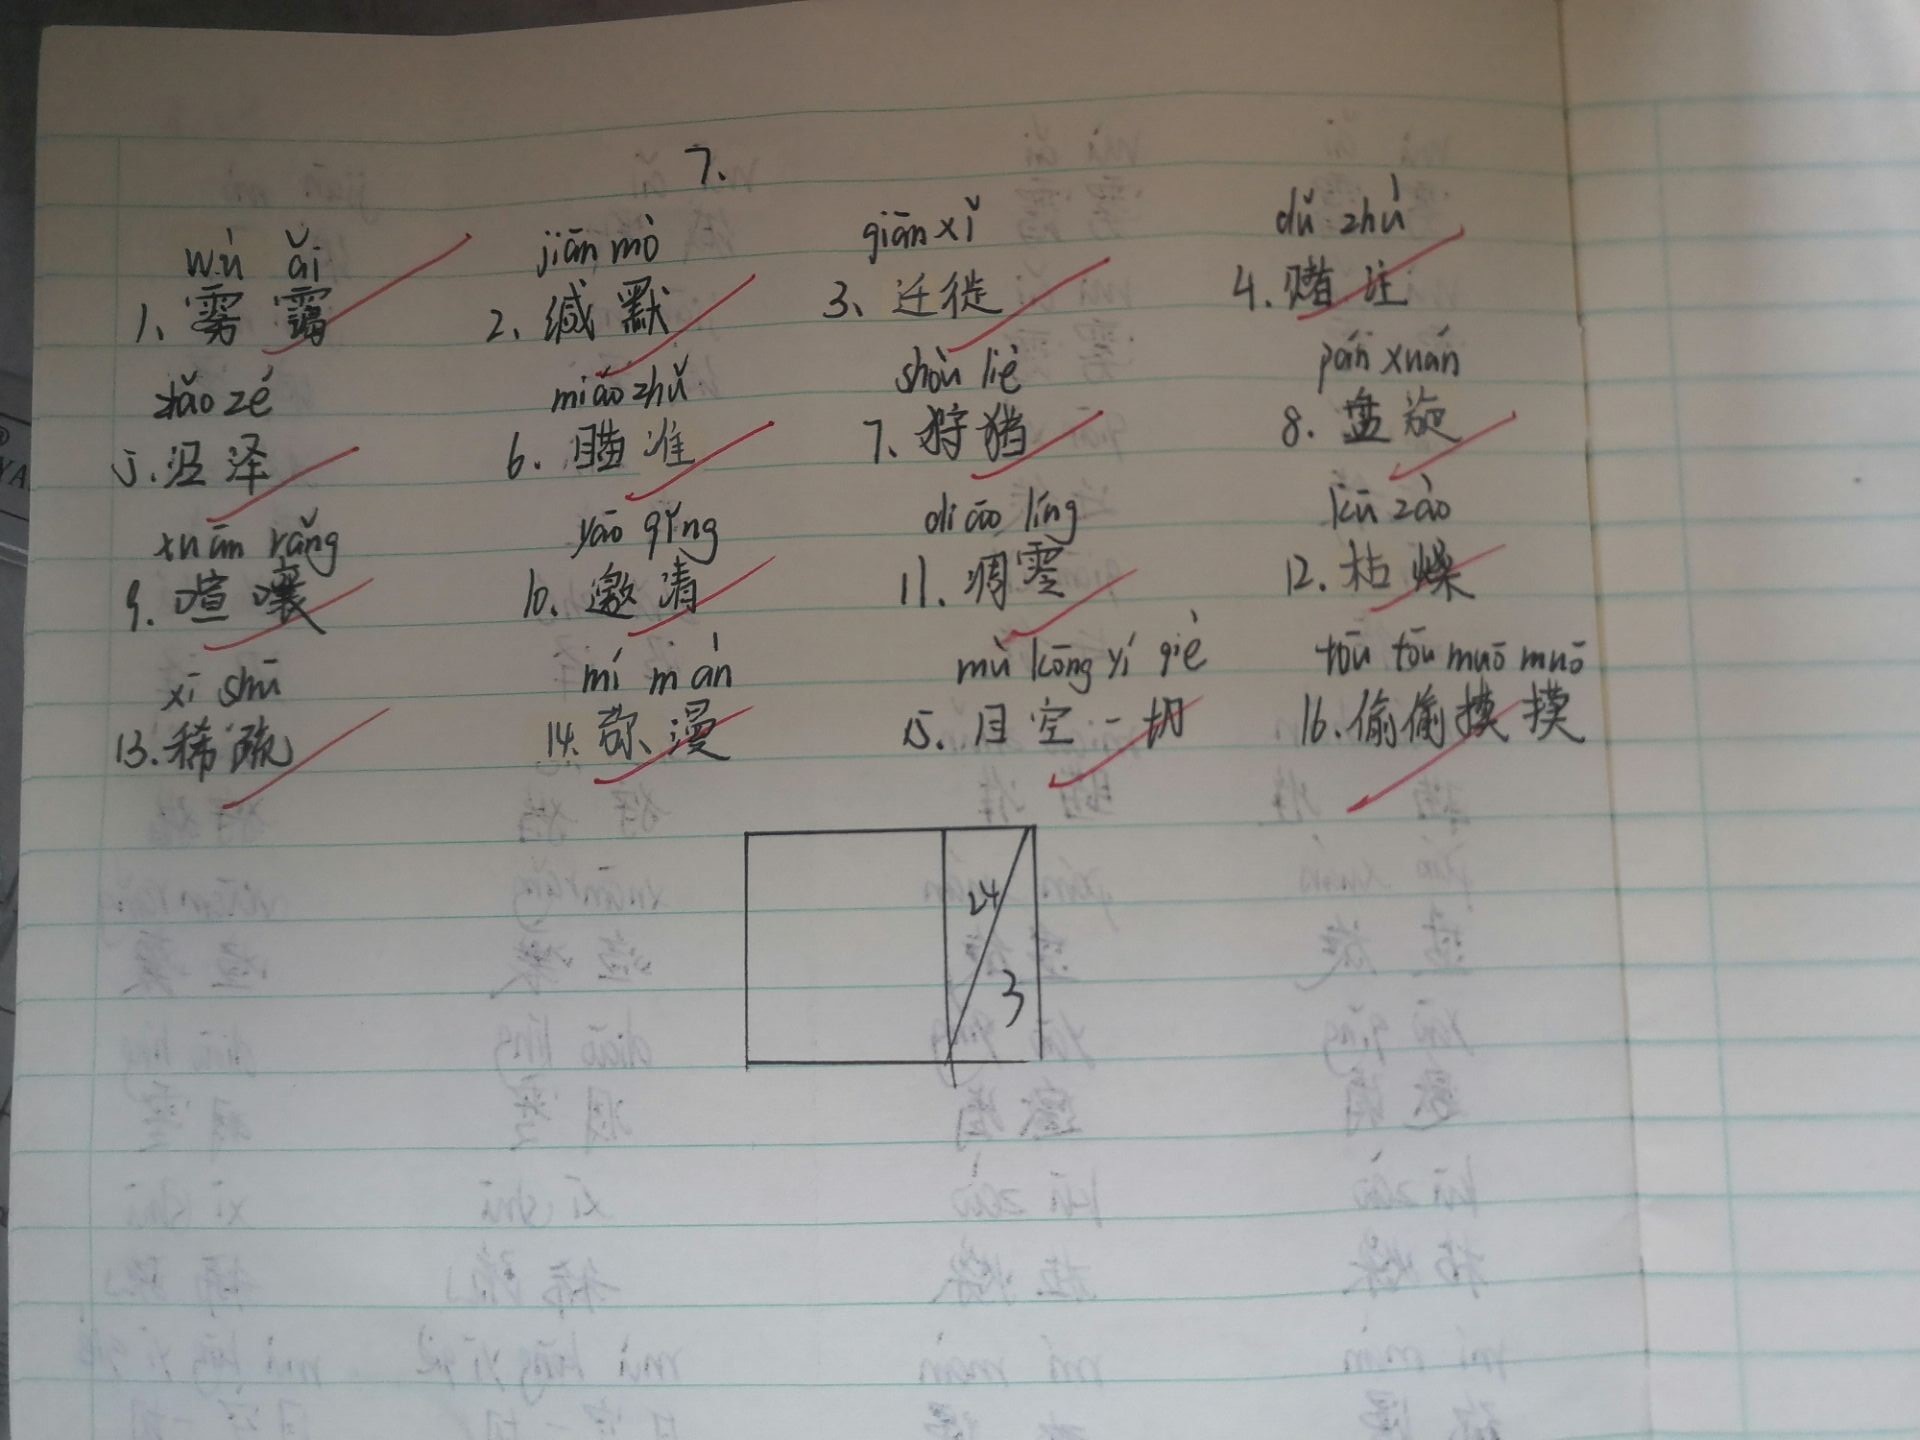 7.
wù ǎi jiān mò qiān xǐ dǔ zhù
1、雾霭 2、缄默 3、迁徙 4.赌注
zhǎo zé miáo zhǔn shòu liè pán xuán
5.沼泽 6.瞄准 7.狩猎 8.盘旋
xuān rǎng yāo qǐng diāo líng kū zào
9.喧嚷 10.邀请 11.凋零 12.枯燥
xī shū mí màn mù kōng yí qiè tōu tōu muō muō
13.稀疏 14.弥漫 15.目空一切 16.偷偷摸摸
24
3